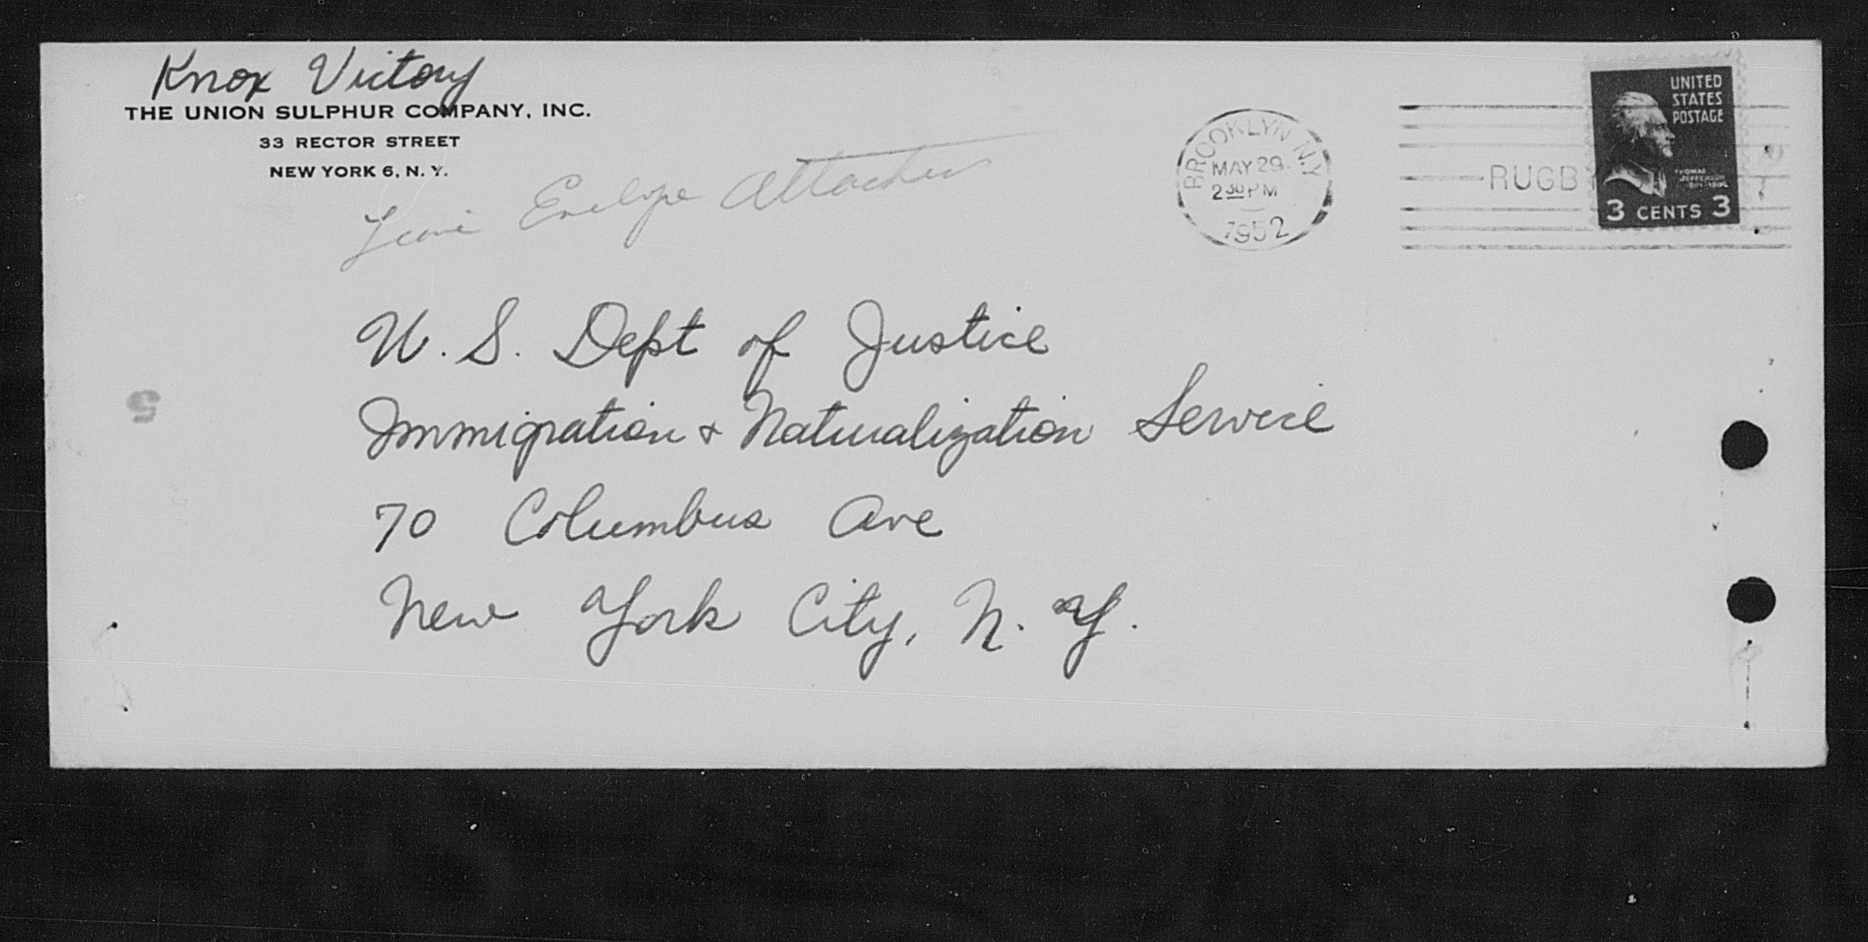 Knox Victory
THE UNION SULPHUR COMPANY, INC.
33 RECTOR STREET
NEW YORK 6, N. Y.
Leave Envelope Attached
BROOKLYN N.Y.
MAY 29
2 30 PM
1952
RUGBY
UNITED
STATES
POSTAGE
THOMAS
JEFFERSON
3 CENTS 3
U. S. Dept of Justice
Immigration & Naturalization Service
70 Columbus Ave
New York City, N. Y.
5